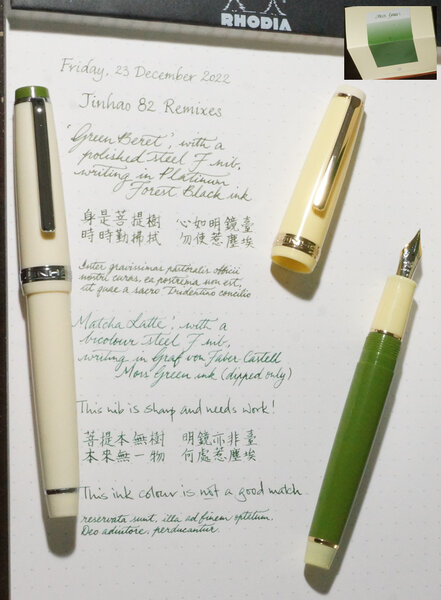 RHODIA
Moss Green
Friday, 23 December 2022
Jinhao 82 Remixes
'Green Beret', with a
polished steel F nib,
writing in Platinum
Forest Black ink
身是菩提樹 心如明鏡臺
時時勤拂拭 勿使惹塵埃
Inter gravissimas pastoralis officii
nostri curas, ea postrema non est,
ut quae a sacro Tridentino concilio
'Matcha Latte', with a
bicolour steel F nib,
writing in Graf von Faber Castell
Moss Green ink (dipped only)
This nib is sharp and needs work!
菩提本無樹 明鏡亦非臺
本來無一物 何處惹塵埃
This ink colour is not a good match
reservata sunt, illa ad finem optatum,
Deo adiutore, perducantur.